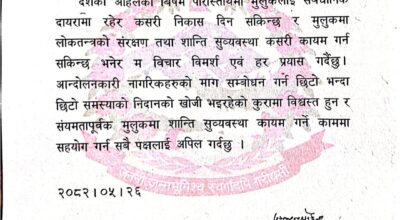 देशको अहिलेको विषम परिस्थितिमा मुलुकलाई संवैधानिक
दायरामा रहेर कसरी निकास दिन सकिन्छ र मुलुकमा
लोकतन्त्रको संरक्षण तथा शान्ति सुव्यवस्था कसरी कायम गर्न
सकिन्छ भनेर म विचार विमर्श एवं हर प्रयास गर्दैछु।
आन्दोलनकारी नागरिकहरुको माग सम्बोधन गर्न छिटो भन्दा
छिटो समस्याको निदानको खोजी भइरहेको कुरामा विश्वस्त हुन र
संयमतापूर्वक मुलुकमा शान्ति सुव्यवस्था कायम गर्ने काममा
सहयोग गर्न सबै पक्षलाई अपिल गर्दछु ।
२०८२।०५।२६